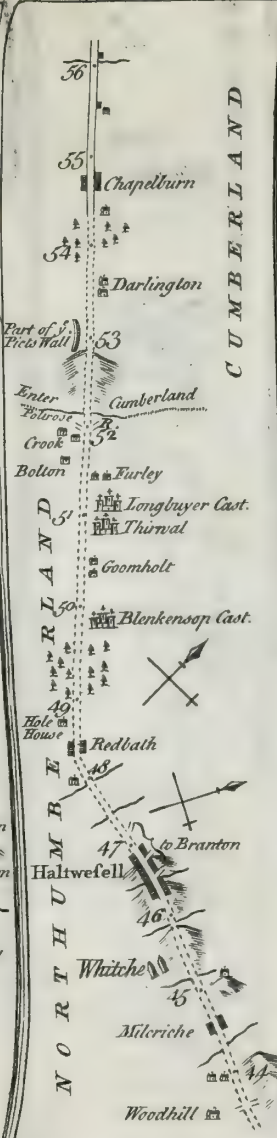 56
55
Chapelburn
54
Darlington
Part of yᵉ
Picts Wall
53
Enter
Cumberland
Poltrose
R.
52
Crook
Bolton
Furley
51
Longbuyer Cast.
Thirwal
Goomholt
50
Blenkensop Cast.
49
Hole
House
Redbath
48
47
to Branton
Haltwesell
46
Whitche
45
Milcriche
44
Woodhill
CUMBERLAND
NORTHUMBERLAND